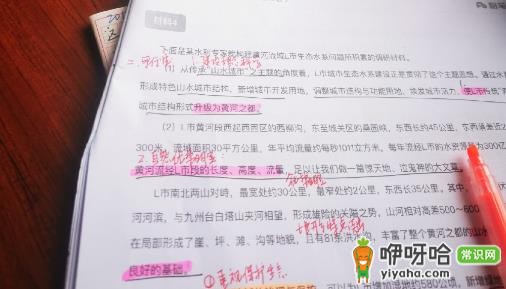 材料4
下面是某水利专家就构建黄河流域L市生态水系问题所积累的调研材料。
从传承“山水城市”之主题的角度看，L市城市生态水系建设正是贯彻了这个主题思想。通过水
形成特色山水城市结构，新增城市开发用地，调整城市结构与功能用地，焕发城市活力，使L市
城市结构形式升级为黄河之都。
（2）L市黄河段西起西固区的西柳沟，东至城关区的桑园峡，东西长约45公里，东西
300米，流域面积30平方公里，年平均流量约每秒1011立方米，每年流经L市的水资源
2.自然优势明显
黄河流经L市段的长度、高度、流量，足以让我们做一篇惊天地、泣鬼神的大文章。
L市南北两山对峙，最宽处约30公里，最窄处约2公里，东西长35公里。其中，
河河滨，与九州台白塔山夹河相望，形成雄险的关隘之势，山河相对高差500～600
在局部形成了崖、坪、滩、沟等地貌，且有81条洪水沟，丰富了整个黄河之都的山水
良好的基础。
①重视保护生态
可以为L市增加湿地约580公顷，新增
咿呀哈 常识网
yiyaha.com